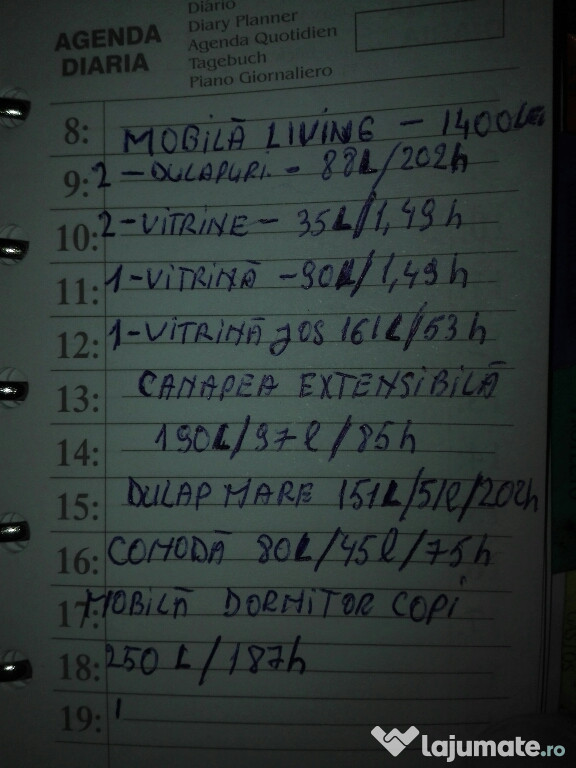 Diario
Diary Planner
AGENDA Agenda Quotidien
DIARIA Tagebuch
Piano Giornaliero
8: MOBILĂ LIVING – 1400 Lei
9: 2 – DULAPURI – 88L/202h
10: 2 – VITRINE – 35L/1,49h
11: 1 – VITRINĂ – 90L/1,49h
12: 1 – VITRINĂ JOS 161L/53h
13: CANAPEA EXTENSIBILĂ
14: 190L/97l/85h
15: DULAP MARE 151L/51l/202h
16: COMODĂ 80L/45l/75h
17: MOBILĂ DORMITOR COPI
18: 250L/187h
19:
lajumate.ro